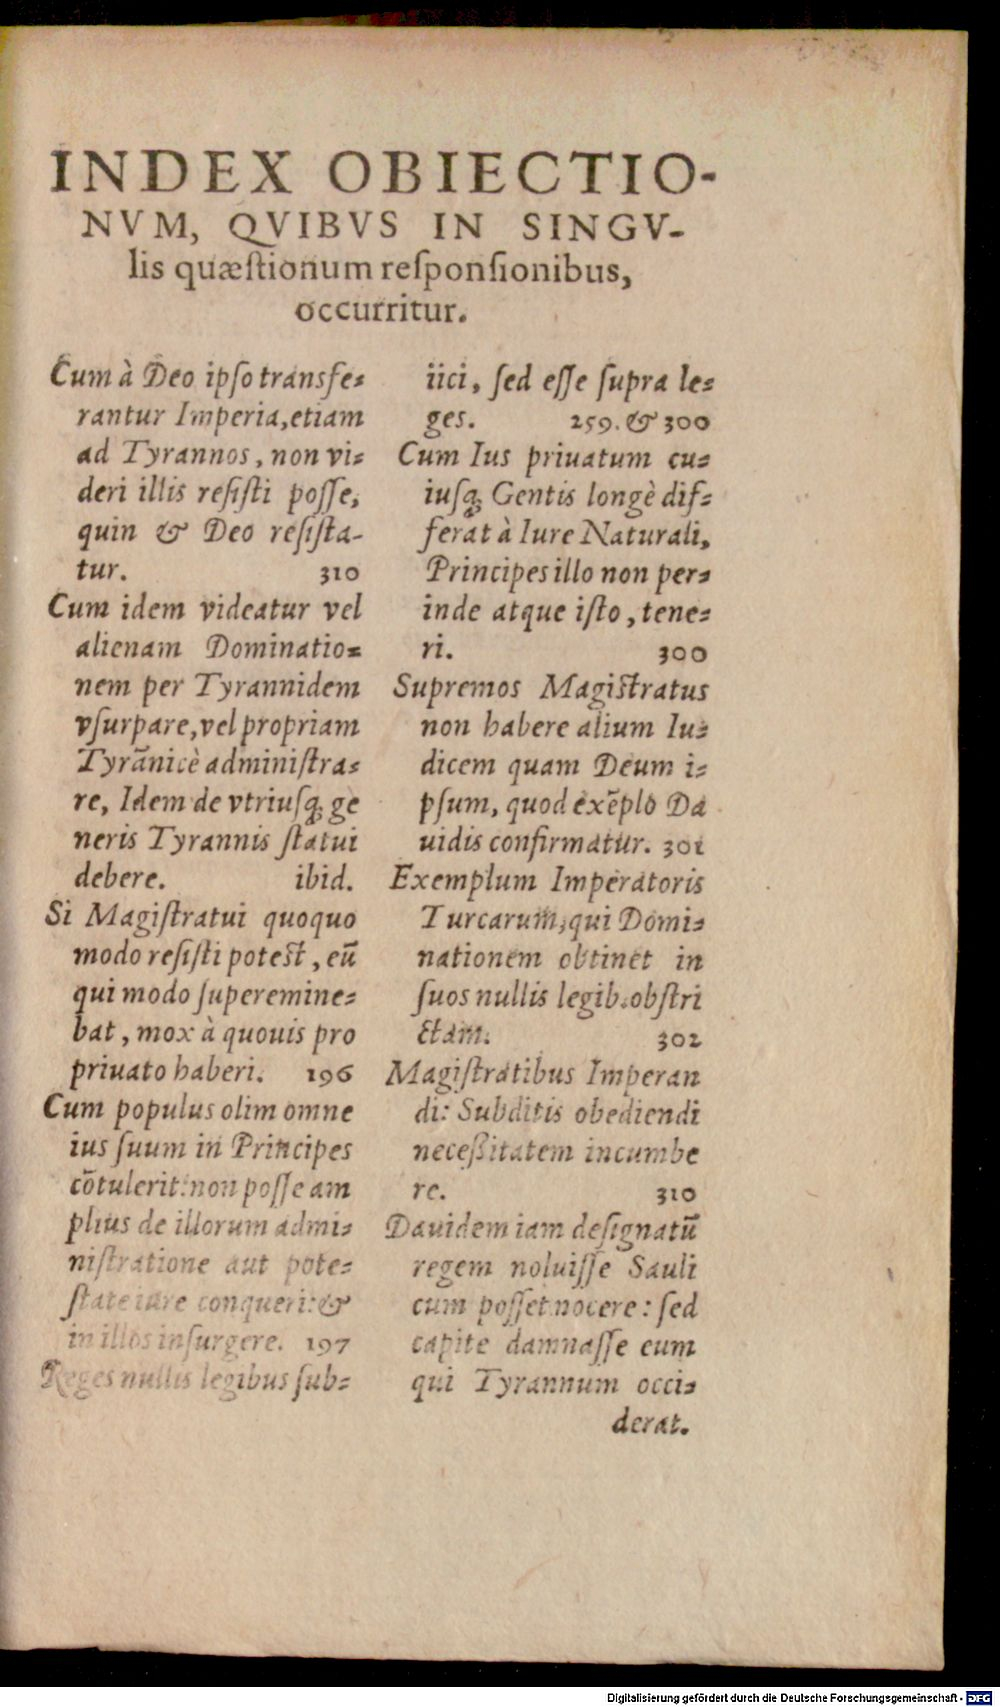 INDEX OBIECTIO-
NVM, QVIBVS IN SINGV-
lis quæſtionum reſponſionibus,
occurritur.
Cum à Deo ipſo transfe-
rantur Imperia, etiam
ad Tyrannos, non vi-
deri illis reſiſti poſſe,
quin & Deo reſiſta-
tur. 310
Cum idem videatur vel
alienam Dominatio-
nem per Tyrannidem
vſurpare, vel propriam
Tyrānicè adminiſtra-
re, Idem de vtriuſq; ge
neris Tyrannis ſtatui
debere. ibid.
Si Magiſtratui quoquo
modo reſiſti poteſt, eū
qui modo ſuperemine-
bat, mox à quouis pro
priuato haberi. 196
Cum populus olim omne
ius ſuum in Principes
cōtulerit: non poſſe am
plius de illorum admi-
niſtratione aut pote-
ſtate iure conqueri: &
in illos inſurgere. 197
Reges nullis legibus ſub-
iici, ſed eſſe ſupra le-
ges. 259. & 300
Cum Ius priuatum cu-
iuſq; Gentis longè dif-
ferat à Iure Naturali,
Principes illo non per-
inde atque iſto, tene-
ri. 300
Supremos Magiſtratus
non habere alium Iu-
dicem quam Deum i-
pſum, quod exēplo Da
uidis confirmatur. 301
Exemplum Imperatoris
Turcarum, qui Domi-
nationem obtinet in
ſuos nullis legib. obſtri
ctam. 302
Magiſtratibus Imperan
di: Subditis obediendi
neceßitatem incumbe
re. 310
Dauidem iam deſignatū
regem noluiſſe Sauli
cum poſſet nocere: ſed
capite damnaſſe eum
qui Tyrannum occi-
derat.
Digitalisierung gefördert durch die Deutsche Forschungsgemeinschaft - DFG